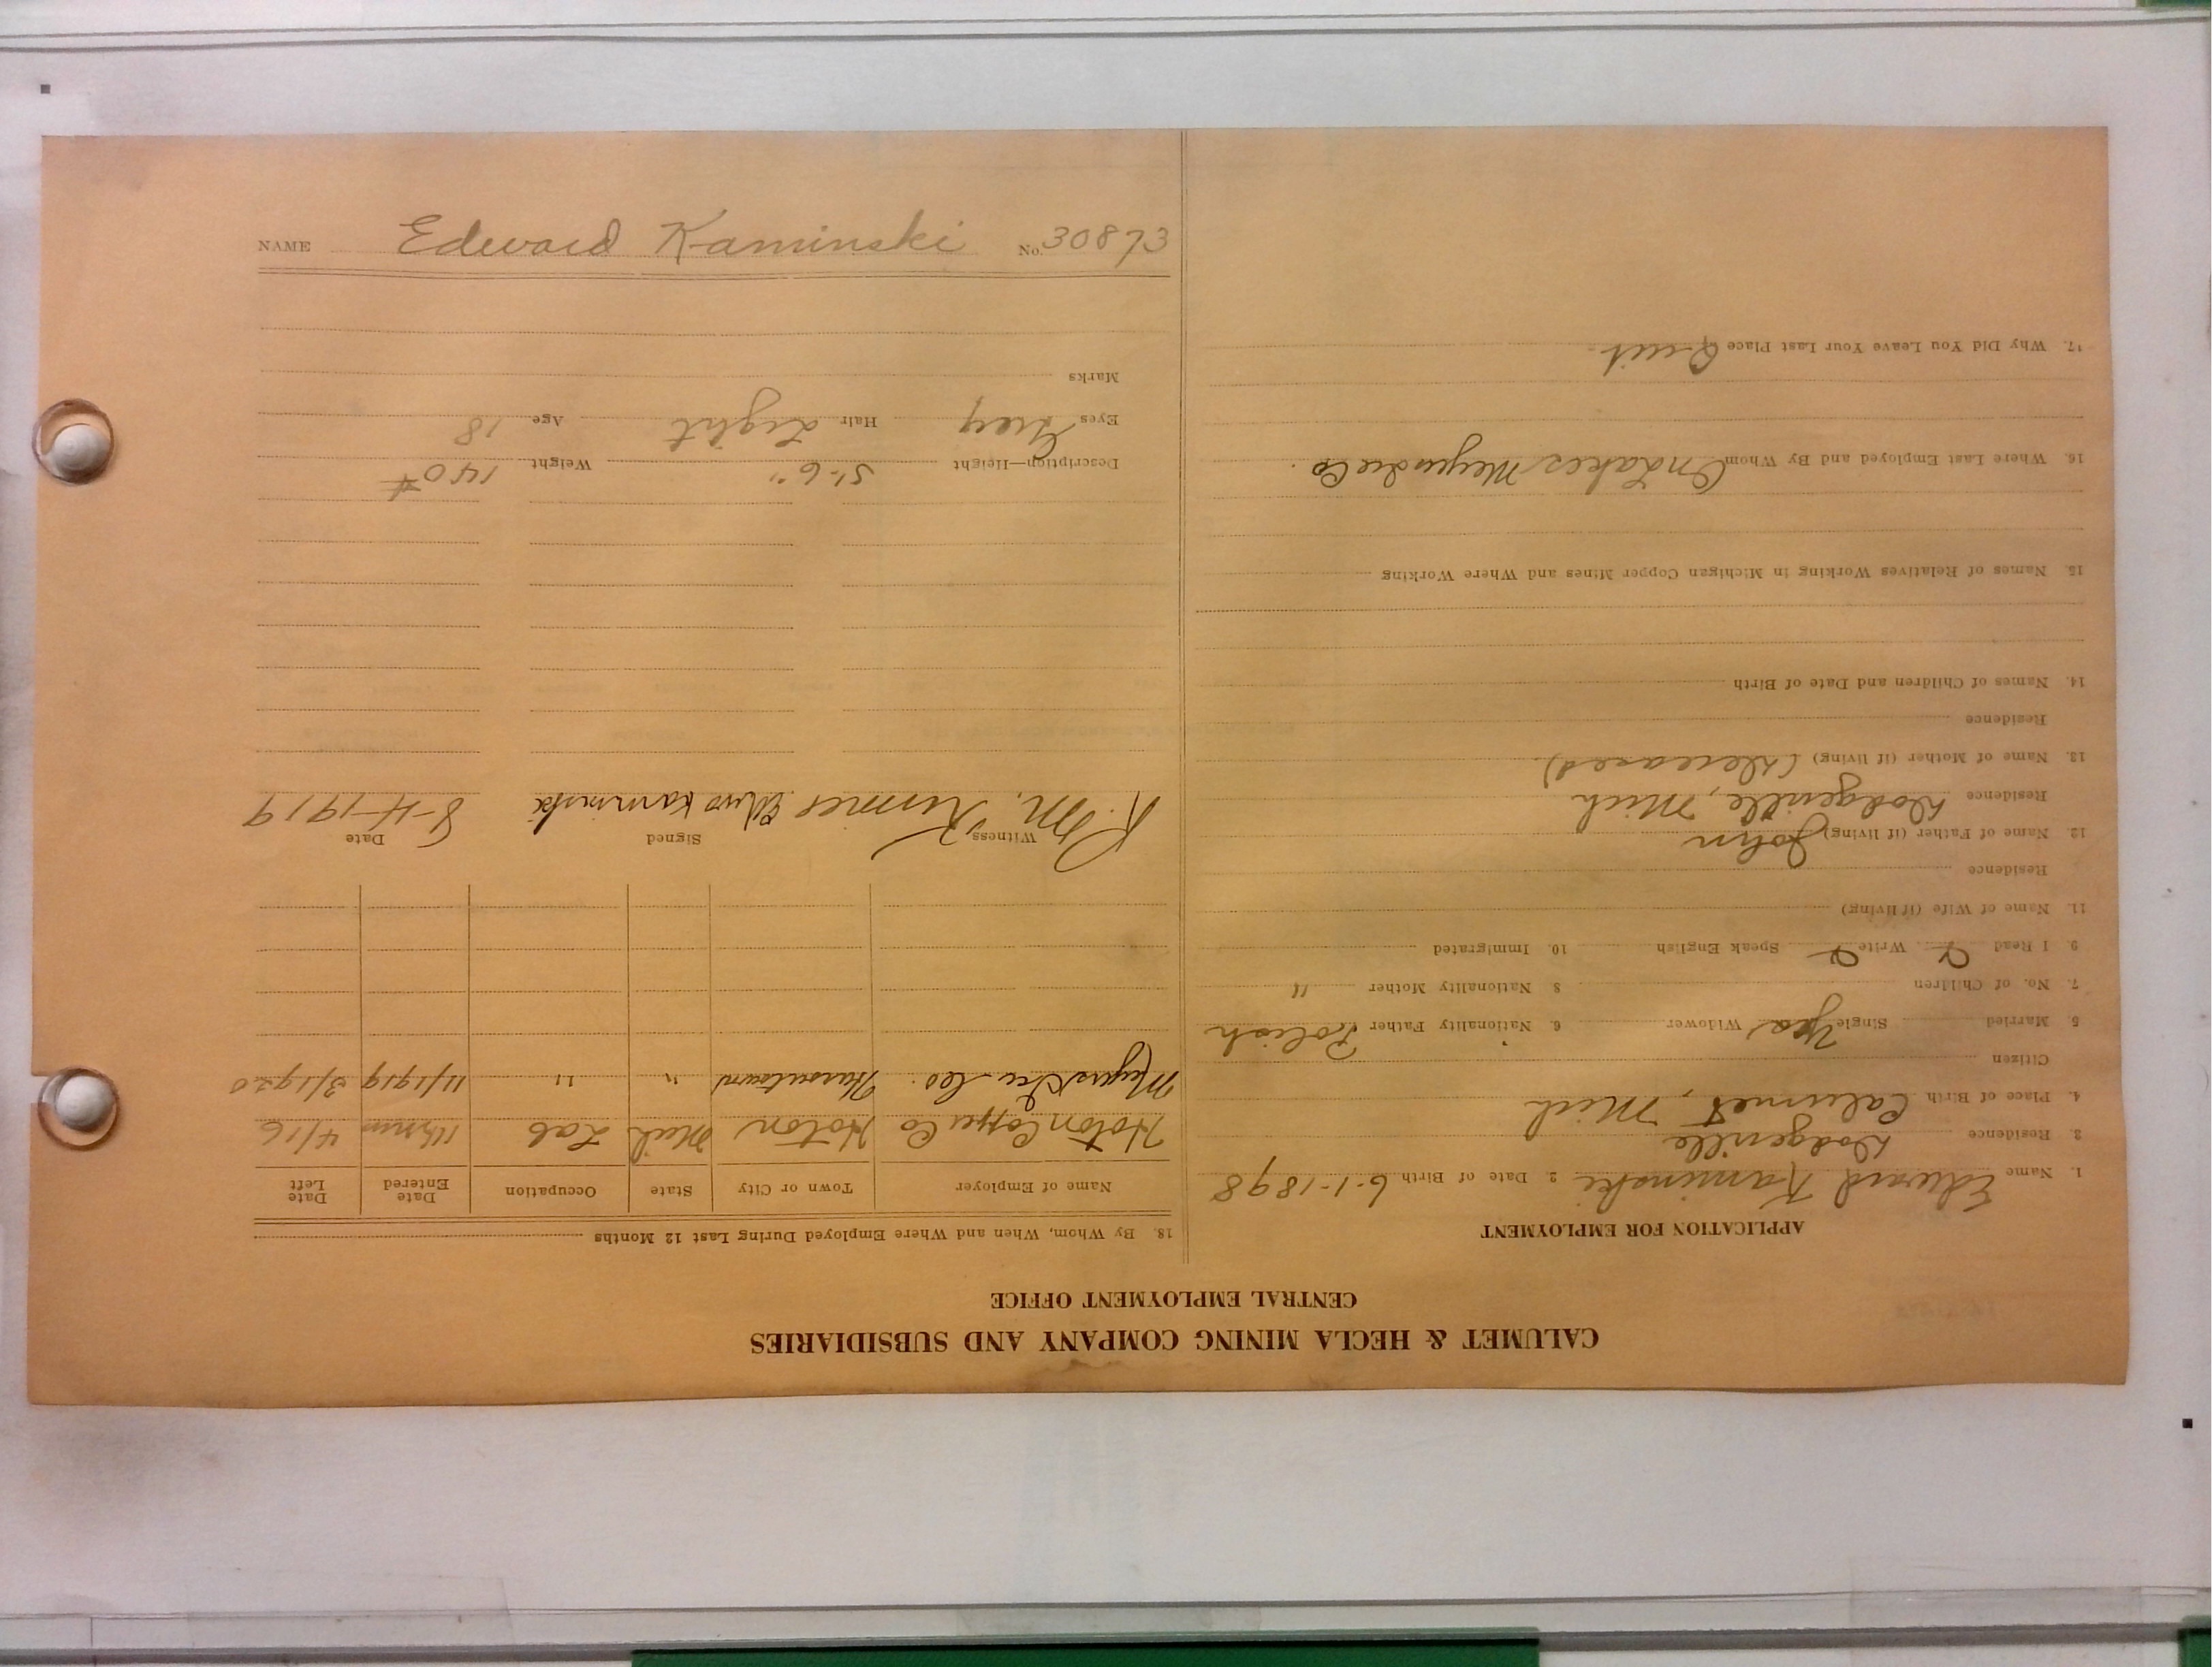 CALUMET & HECLA MINING COMPANY AND SUBSIDIARIES
CENTRAL EMPLOYMENT OFFICE
APPLICATION FOR EMPLOYMENT
1. Name Edward Kaminski 2. Date of Birth 6-1-1898
3. Residence Dodgeville
4. Place of Birth Calumet, Mich
Citizen
5. Married Single Yes Widower 6. Nationality Father Polish
7. No. of Children 8. Nationality Mother "
9. I Read Write Speak English 10. Immigrated
11. Name of Wife (if living)
Residence
12. Name of Father (if living) John
Residence Dodgeville, Mich
13. Name of Mother (if living) (Deceased)
Residence
14. Names of Children and Date of Birth
15. Names of Relatives Working in Michigan Copper Mines and Where Working
16. Where Last Employed and By Whom On Lakes Co.
17. Why Did You Leave Your Last Place Quit
18. By Whom, When and Where Employed During Last 12 Months
Name of Employer Town or City State Occupation Date Entered Date Left
Hoton Copper Co Hoton Mich Lab 4/16
Co. " " 11/1919 3/1920
Witness Signed Date
R. M. Edwd Kaminski 8-4-1919
Description—Height 5'-6" Weight 140#
Eyes Grey Hair Light Age 18
Marks
NAME Edward Kaminski No. 30873